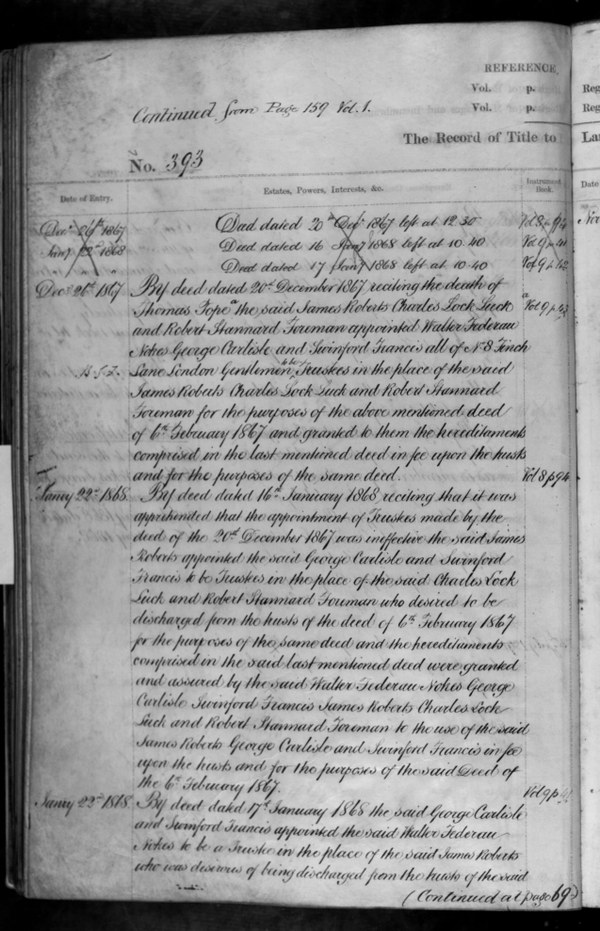 REFERENCE
Vol. p.
Vol. p.
Continued from Page 159 Vol. 1.
The Record of Title to
No. 393
Date of Entry.
Estates, Powers, Interests, &c.
Instrument Book.
Decr 26th 1867 Deed dated 20th Decr 1867 left at 12.30 Vol 8 p 94
Jany 22nd 1868 Deed dated 16 Jany 1868 left at 10.40 Vol 9 p 41
Deed dated 17 Jany 1868 left at 10.40 Vol 9 p 42
Decr 26th 1867 By deed dated 20th December 1867 reciting the death of
Thomas Pope the said James Roberts Charles Lock Luck
and Robert Stannard Foreman appointed Walter Federau
Nokes George Carlisle and Swinford Francis all of No 8 Finch
Lane London Gentlemen to be Trustees in the place of the said
James Roberts Charles Lock Luck and Robert Stannard
Foreman for the purposes of the above mentioned deed
of 6th February 1867 and granted to them the hereditaments
comprised in the last mentioned deed in fee upon the trusts
and for the purposes of the same deed. Vol 8 p 94
Janry 22nd 1868. By deed dated 16th January 1868 reciting that it was
apprehended that the appointment of Trustees made by the
deed of the 20th December 1867 was ineffective the said James
Roberts appointed the said George Carlisle and Swinford
Francis to be Trustees in the place of the said Charles Lock
Luck and Robert Stannard Foreman who desired to be
discharged from the trusts of the deed of 6th February 1867
for the purposes of the same deed and the hereditaments
comprised in the said last mentioned deed were granted
and assured by the said Walter Federau Nokes George
Carlisle Swinford Francis James Roberts Charles Lock
Luck and Robert Stannard Foreman to the use of the said
James Roberts George Carlisle and Swinford Francis in fee
upon the trusts and for the purposes of the said Deed of
the 6th February 1867. Vol 9 p 41
Janry 22nd 1868. By deed dated 17th January 1868 the said George Carlisle
and Swinford Francis appointed the said Walter Federau
Nokes to be a Trustee in the place of the said James Roberts
who was desirous of being discharged from the trusts of the said
(Continued at page 69)